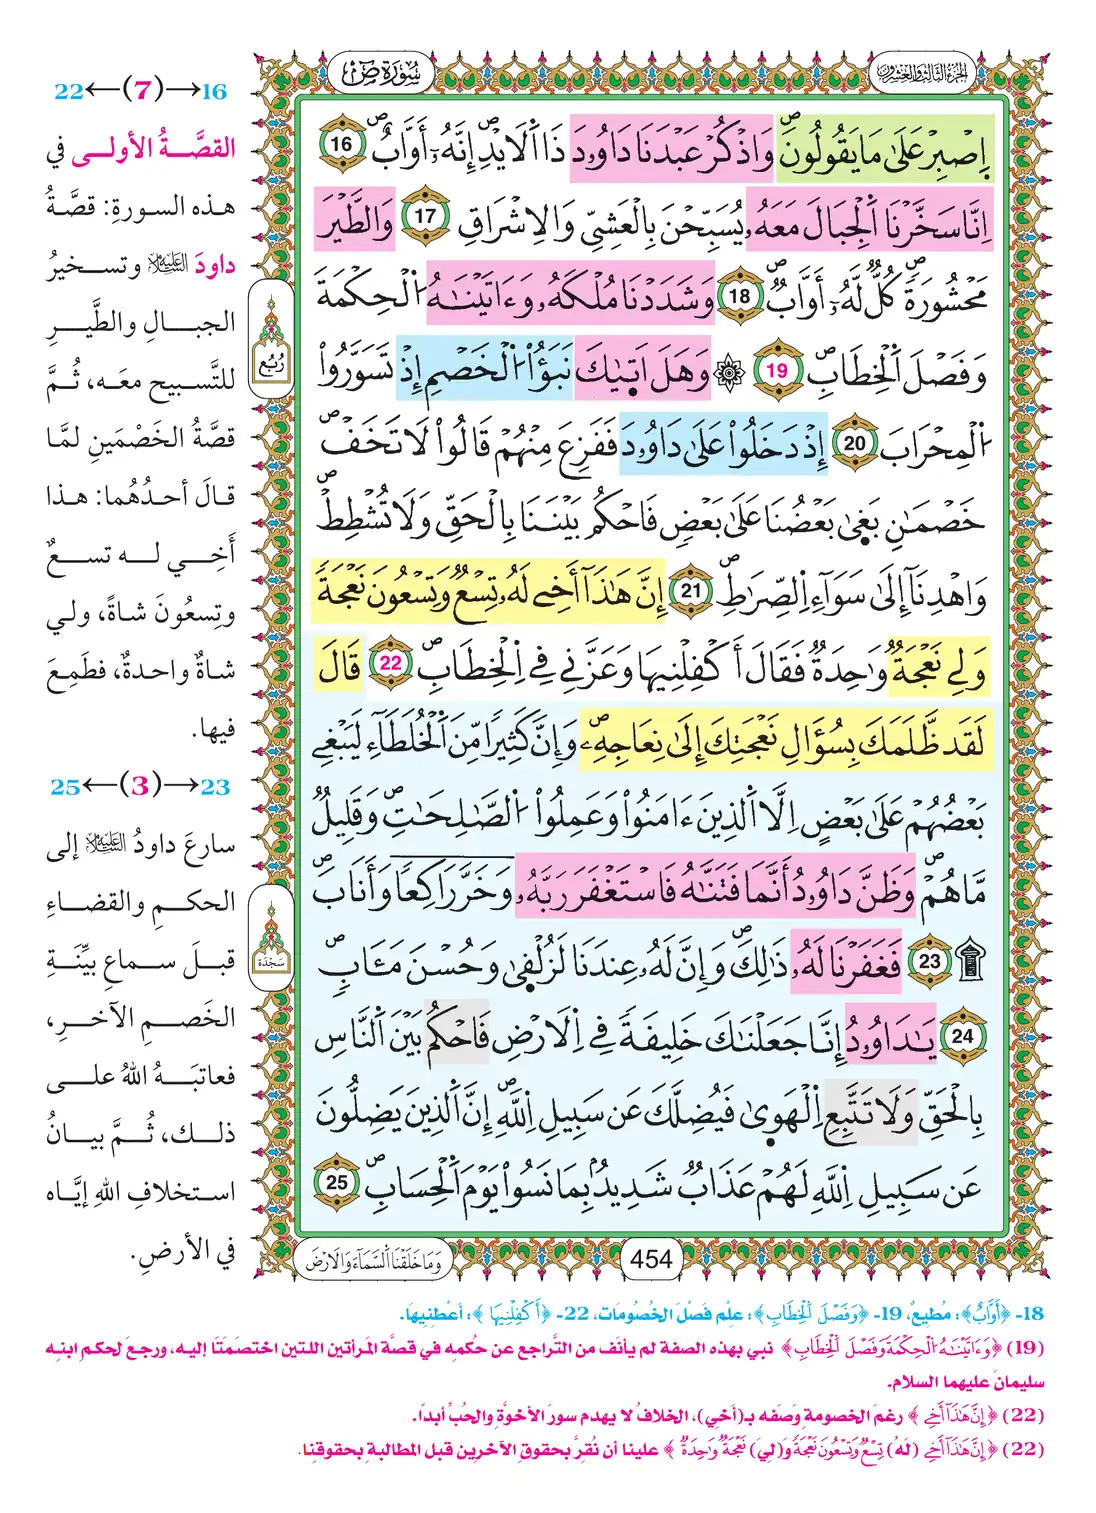 الجزء الثالث والعشرون
سُورَةُ صٓ
اِ۪صْبِرْ عَلَىٰ مَا يَقُولُونَۖ وَاذْكُرْ عَبْدَنَا دَاوُۥدَ ذَا اَ۬لَايْدِۖ إِنَّهُۥٓ أَوَّابٌۖ 16
اِنَّا سَخَّرْنَا اَ۬لْجِبَالَ مَعَهُۥ يُسَبِّحْنَ بِالْعَشِيِّ وَالِاشْرَاقِ 17 وَالطَّيْرَ
مَحْشُورَةٗۖ كُلّٞ لَّهُۥٓ أَوَّابٞۖ 18 وَشَدَدْنَا مُلْكَهُۥ وَءَاتَيْنَٰهُ اُ۬لْحِكْمَةَ
وَفَصْلَ اَ۬لْخِطَابِۖ 19 ۞ وَهَلَ اَتَىٰكَ نَبَؤُاْ اُ۬لْخَصْمِ إِذْ تَسَوَّرُواْ
اُ۬لْمِحْرَابَ 20 إِذْ دَخَلُواْ عَلَىٰ دَاوُۥدَ فَفَزِعَ مِنْهُمْ قَالُواْ لَا تَخَفْۖ
خَصْمَٰنِ بَغَىٰ بَعْضُنَا عَلَىٰ بَعْضٖ فَاحْكُم بَيْنَنَا بِالْحَقِّ وَلَا تُشْطِطْۖ
وَاهْدِنَآ إِلَىٰ سَوَآءِ اِ۬لصِّرَٰطِۖ 21 إِنَّ هَٰذَآ أَخِے لَهُۥ تِسْعٞ وَتِسْعُونَ نَعْجَةٗ
وَلِي نَعْجَةٞ وَٰحِدَةٞ فَقَالَ أَكْفِلْنِيهَا وَعَزَّنِي فِي اِ۬لْخِطَابِۖ 22 قَالَ
لَقَد ظَّلَمَكَ بِسُؤَالِ نَعْجَتِكَ إِلَىٰ نِعَاجِهِۦۖ وَإِنَّ كَثِيراٗ مِّنَ اَ۬لْخُلَطَآءِ لَيَبْغِے
بَعْضُهُمْ عَلَىٰ بَعْضٍ اِلَّا اَ۬لذِينَ ءَامَنُواْ وَعَمِلُواْ اُ۬لصَّٰلِحَٰتِۖ وَقَلِيلٞ
مَّا هُمْۖ وَظَنَّ دَاوُۥدُ أَنَّمَا فَتَنَّٰهُ فَاسْتَغْفَرَ رَبَّهُۥ وَخَرَّ رَاكِعاٗ وَأَنَابَۖ
۩ 23 فَغَفَرْنَا لَهُۥ ذَٰلِكَۖ وَإِنَّ لَهُۥ عِندَنَا لَزُلْفَىٰ وَحُسْنَ مَـَٔابٖۖ
24 يَٰدَاوُۥدُ إِنَّا جَعَلْنَٰكَ خَلِيفَةٗ فِي اِ۬لَارْضِ فَاحْكُم بَيْنَ اَ۬لنَّاسِ
بِالْحَقِّ وَلَا تَتَّبِعِ اِ۬لْهَوَىٰ فَيُضِلَّكَ عَن سَبِيلِ اِ۬للَّهِۖ إِنَّ اَ۬لذِينَ يَضِلُّونَ
عَن سَبِيلِ اِ۬للَّهِ لَهُمْ عَذَابٞ شَدِيدُۢ بِمَا نَسُواْ يَوْمَ اَ۬لْحِسَابِۖ 25
وَمَا خَلَقْنَا اَ۬لسَّمَآءَ وَالَارْضَ
454
رُبُع
سَجْدَة
16→(7)←22
القصَّةُ الأولى في
هذه السورةِ: قصَّةُ
داودَ عليه السلام وتسخيرُ
الجبالِ والطَّيرِ
للتَّسبيح معَه، ثُمَّ
قصَّةُ الخَصْمَينِ لمَّا
قالَ أحدُهُما: هذا
أَخِي له تسعٌ
وتِسعُونَ شاةً، ولي
شاةٌ واحدةٌ، فطَمِعَ
فيها.
23→(3)←25
سارعَ داودُ عليه السلام إلى
الحكمِ والقضاءِ
قبلَ سماعِ بيِّنَةِ
الخَصمِ الآخرِ،
فعاتبَهُ اللهُ على
ذلك، ثُمَّ بيانُ
استخلافِ اللهِ إيَّاه
في الأرضِ.
18- ﴿أَوَّابٌ﴾: مُطيعٌ، 19- ﴿وَفَصْلَ اَ۬لْخِطَابِ﴾: عِلْم فَصْلَ الخُصُومَات، 22- ﴿أَكْفِلْنِيهَا﴾: أعْطنِيهَا.
(19) ﴿وَءَاتَيْنَٰهُ اُ۬لْحِكْمَةَ وَفَصْلَ اَ۬لْخِطَابِ﴾ نبي بهذه الصفة لم يأنَف من التَّراجع عن حكْمِه في قصَّة المَرأتين اللتين اختصَمتَا إليه، ورجعَ لحكم ابنِه
سليمان عليهما السلام.
(22) ﴿إِنَّ هَٰذَآ أَخِے﴾ رغمَ الخصومةِ وصَفه بـ(أخِي)، الخلافُ لا يهدم سورَ الأخوَّةِ والحُبِّ أبداً.
(22) ﴿إِنَّ هَٰذَآ أَخِے (لَهُ) تِسْعٞ وَتِسْعُونَ نَعْجَةٗ وَ(لِيَ) نَعْجَةٞ وَٰحِدَةٞ﴾ علينا أن نُقرَّ بحقوقِ الآخرين قبل المطالبةِ بحقوقِنا.